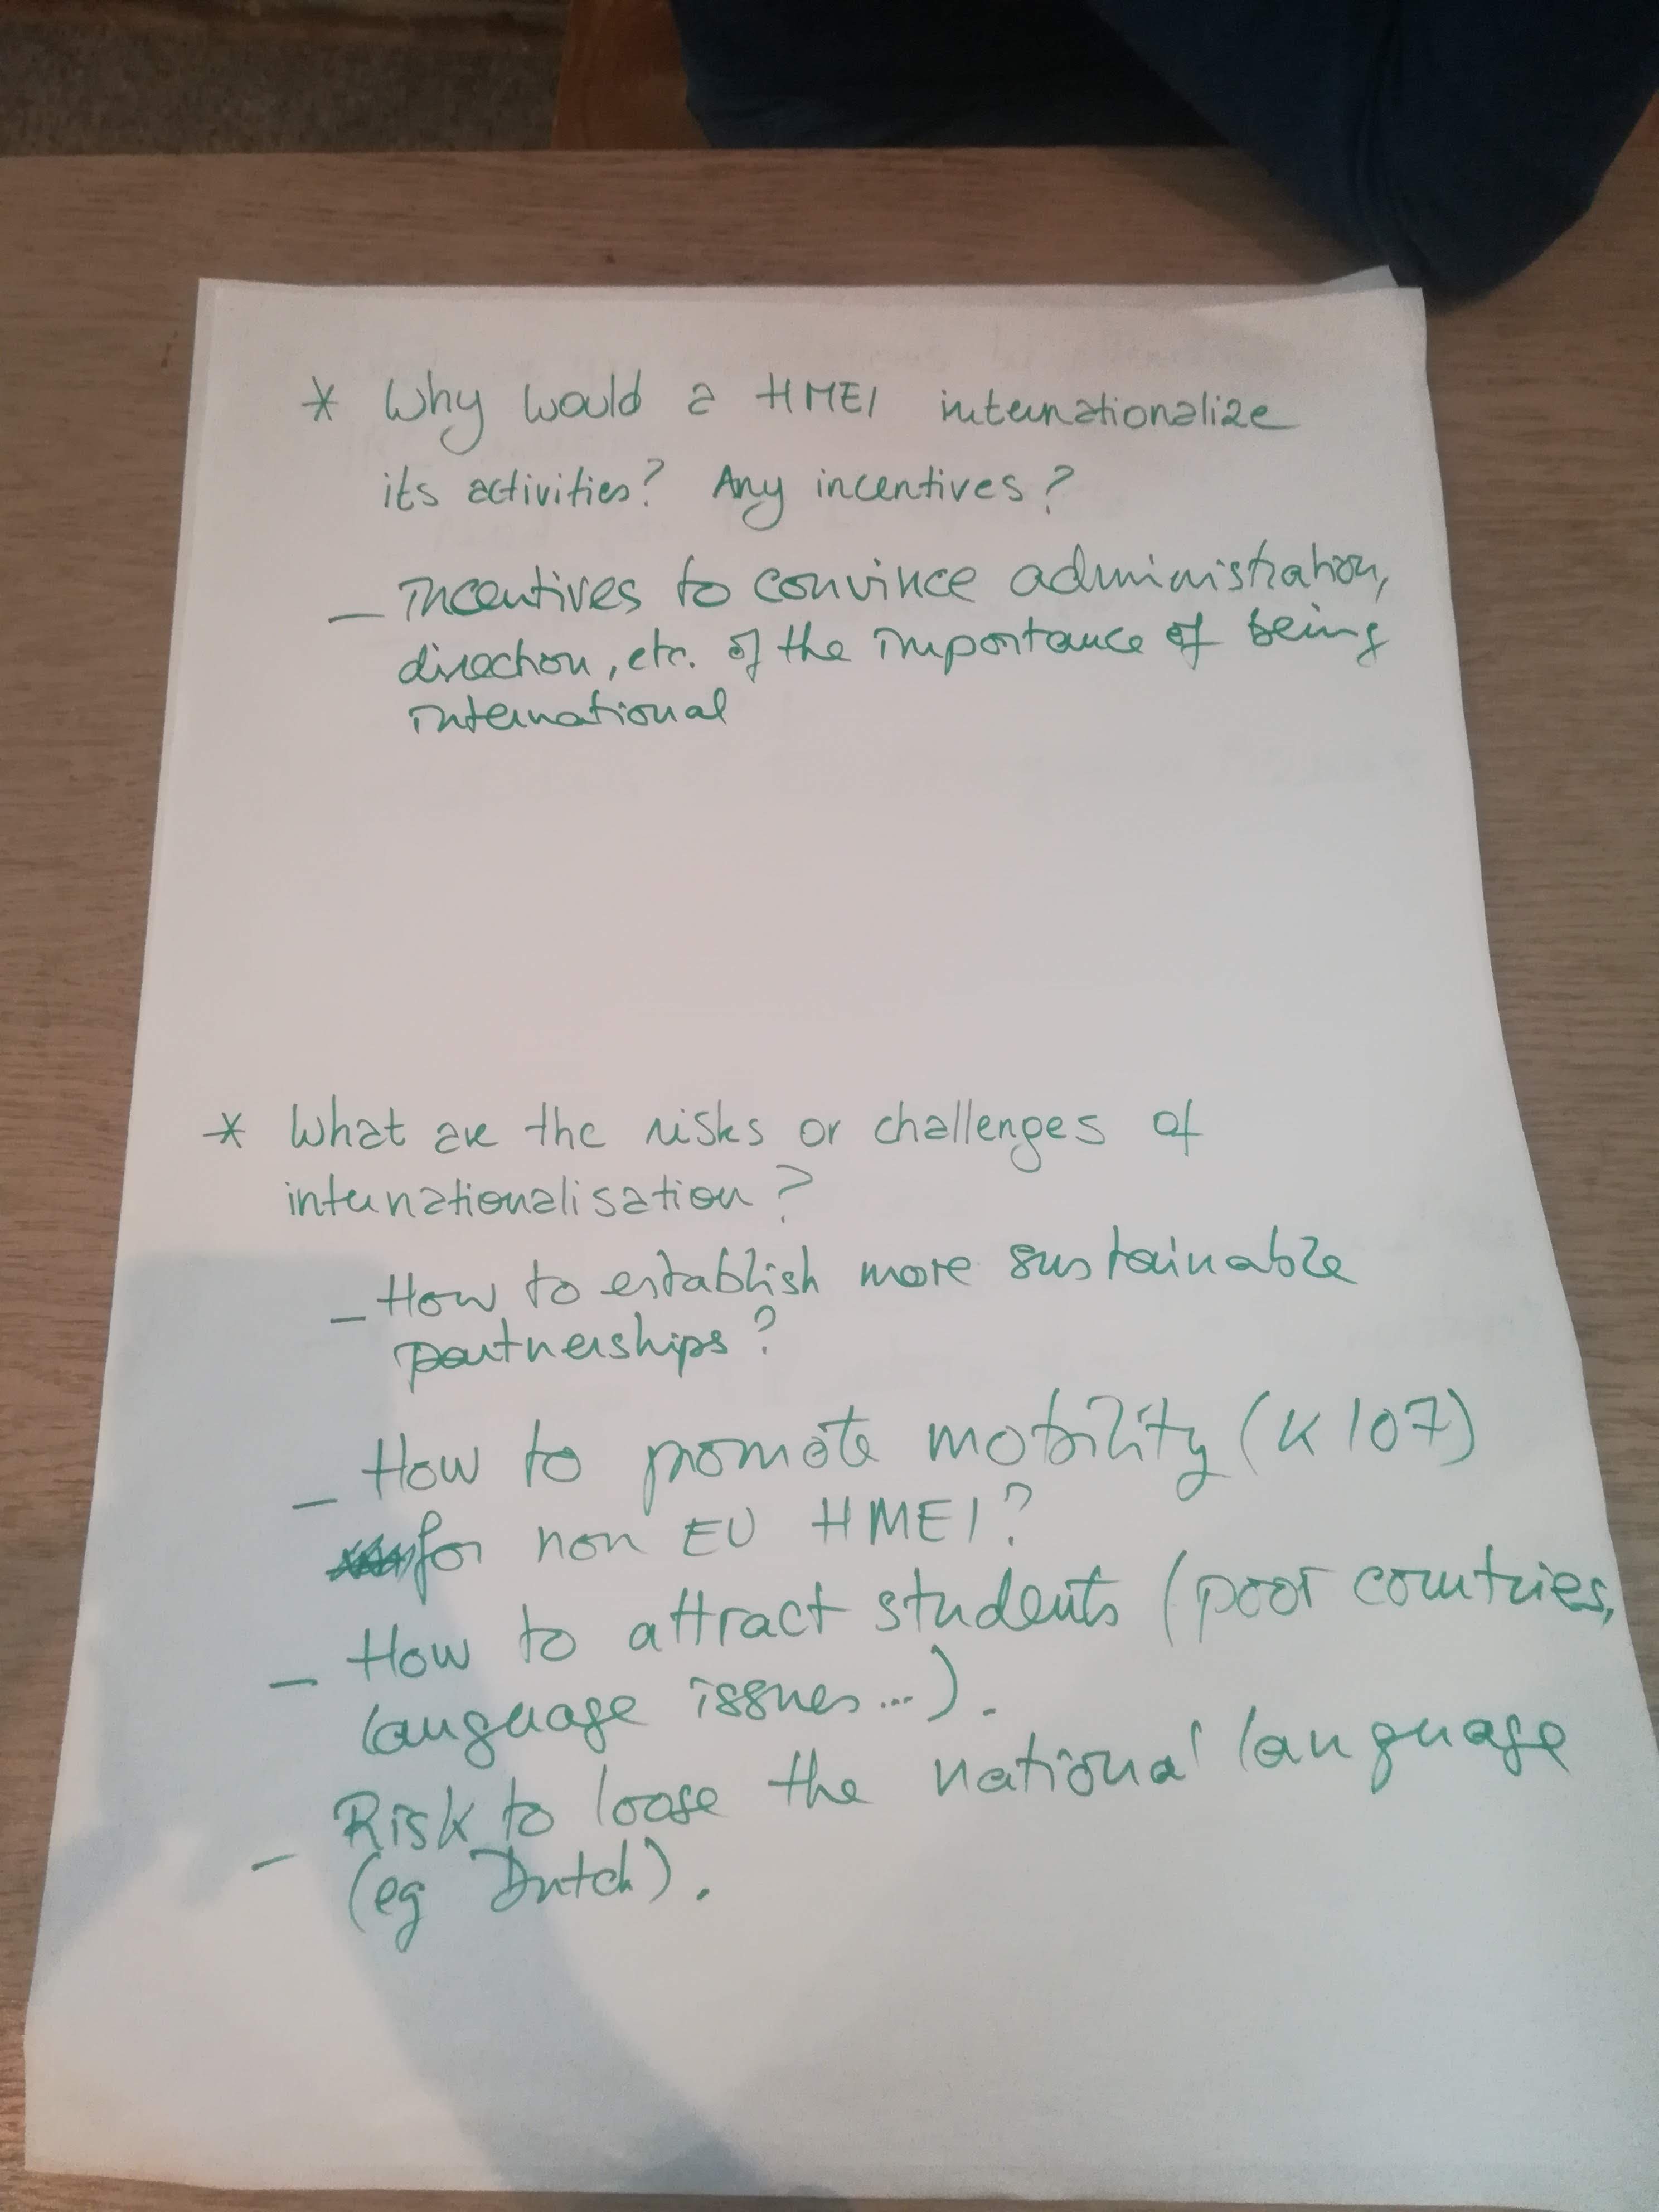 * Why would a HMEI internationalize
its activities? Any incentives?
_ Incentives to convince administration,
direction, etc. of the importance of being
international
* What are the risks or challenges of
internationalisation?
_ How to establish more sustainable
partnerships?
_ How to promote mobility (K107)
for non EU HMEI?
_ How to attract students (poor countries,
language issues...).
_ Risk to loose the national language
(eg Dutch).